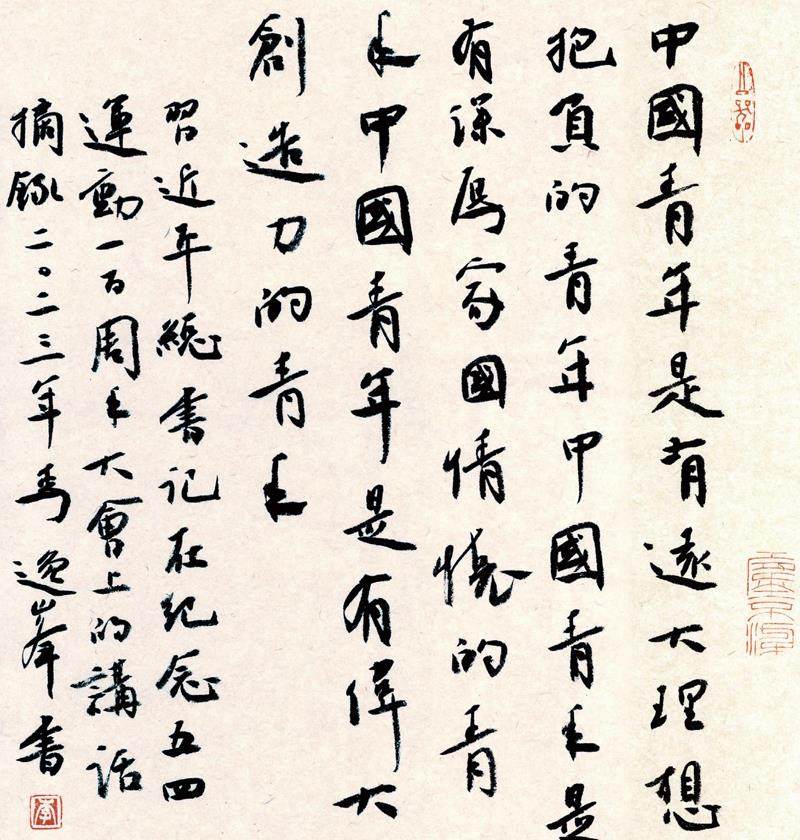 中國青年是有遠大理想
抱負的青年中國青年是
有深厚家國情懷的青
年中國青年是有偉大
創造力的青年
習近平總書記在紀念五四
運動一百周年大會上的講話
摘録二〇二三年李逸峯書
李